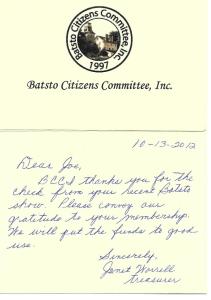 Batsto Citizens Committee, Inc
1997
Batsto Citizens Committee, Inc.
10-13-2012
Dear Joe,
BCCI thanks you for the
check from your recent Batsto
show. Please convey our
gratitude to your membership.
We will put the funds to good
use.
Sincerely,
Janet Worrell
Treasurer